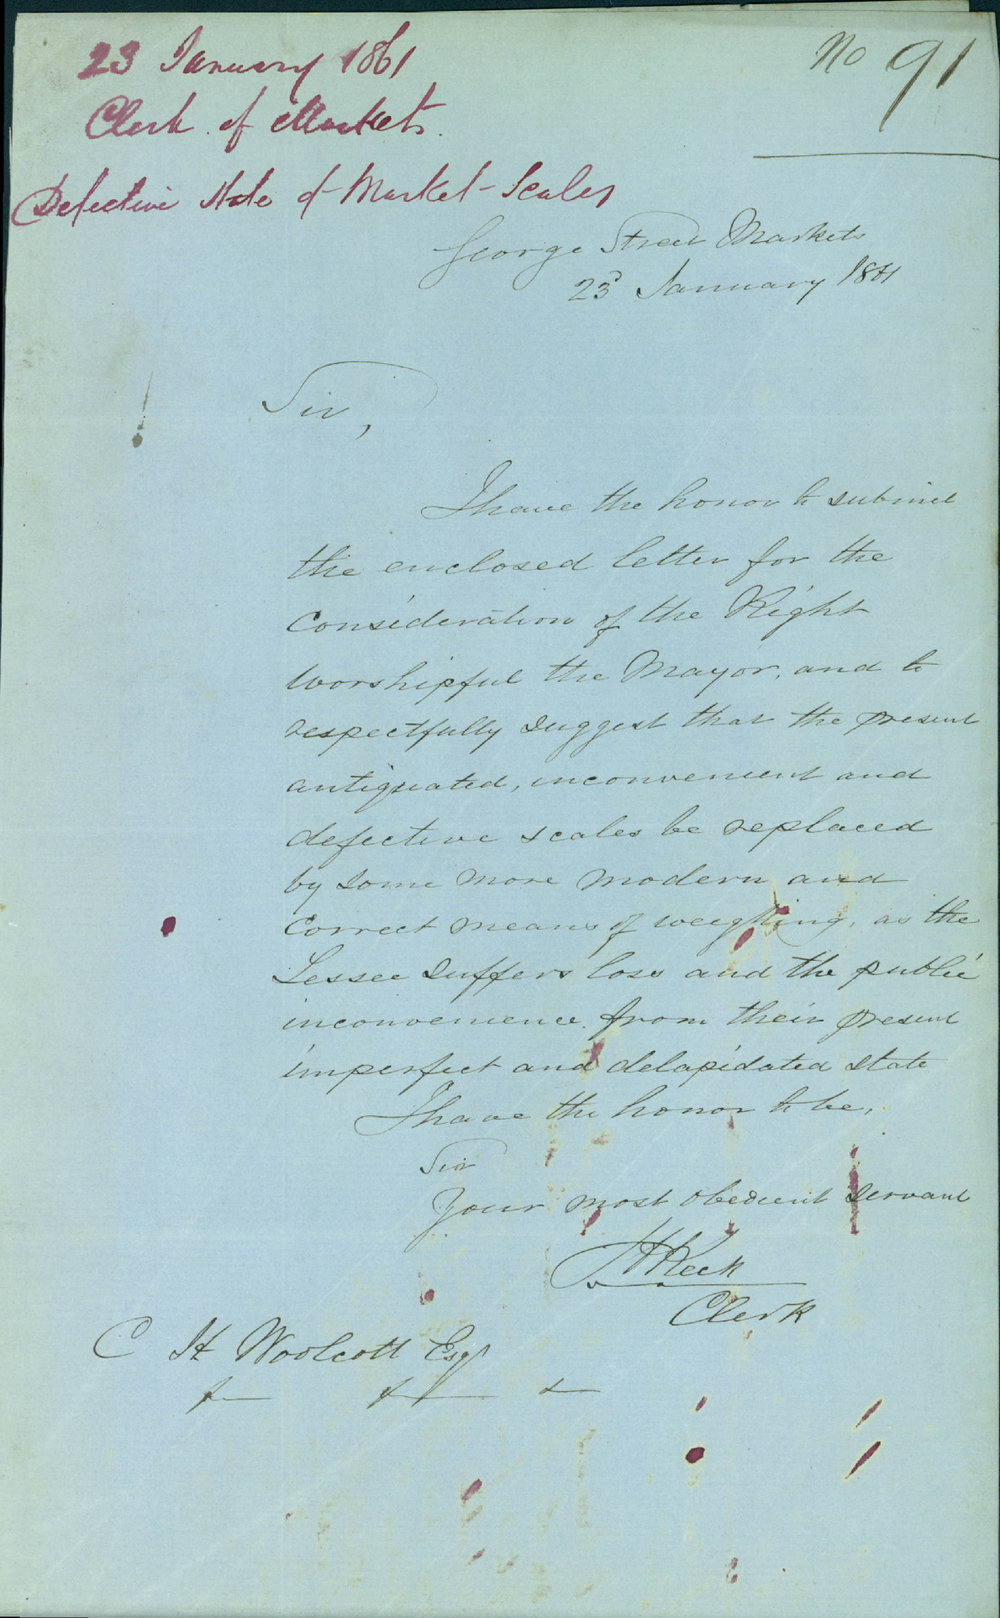 23 January 1861
No 91
Clerk of Markets.
Defective State of Market Scales
George Street Markets
23d January 1861
Sir,
I have the honor to submit
the enclosed letter for the
Consideration of the Right
Worshipful the Mayor, and to
respectfully suggest that the present
antiquated, inconvenient and
defective scales be replaced
by some more modern and
Correct means of weighing, as the
Lessee suffers loss and the public
inconvenience from their present
imperfect and delapidated state
I have the honor to be,
Sir
Your most obedient servant
Keck
Clerk
C H Woolcott Esqr